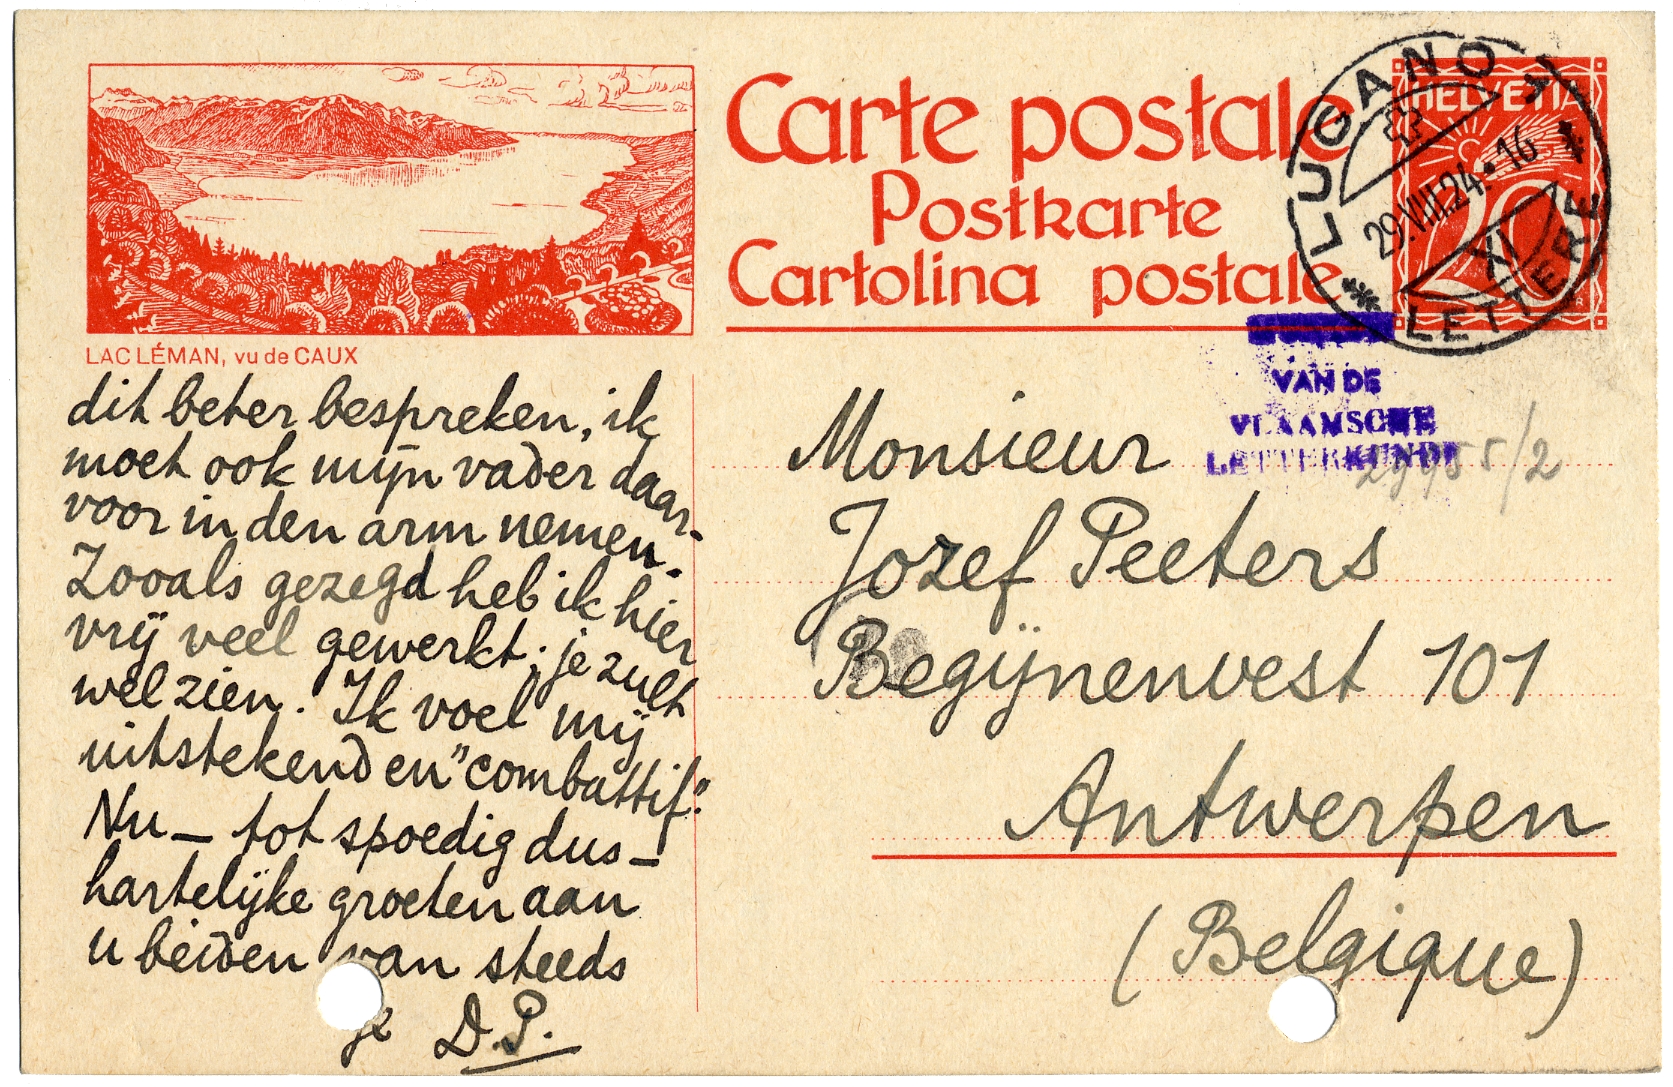 Carte postale
Postkarte
Cartolina postale
HELVETIA
20
LUGANO 1
29.VIII.24.-16
XI
LETTERE
LAC LÉMAN, vu de CAUX
VAN DE
VLAAMSCHE
LETTERKUNDE
dit beter bespreken, ik
moet ook mijn vader daar-
voor in den arm nemen.
Zooals gezegd heb ik hier
vrij veel gewerkt; je zult
wel zien. Ik voel mij
uitstekend en "combattif".
Nu — tot spoedig dus —
hartelijke groeten aan
u beiden van steeds
je D.P.
Monsieur
Jozef Peeters
Begijnenvest 101
Antwerpen
(Belgique)